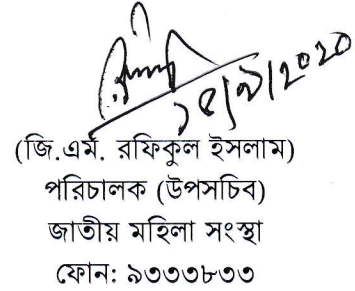 (জি.এম. রফিকুল ইসলাম)
পরিচালক (উপসচিব)
জাতীয় মহিলা সংস্থা
ফোন: ৯৩৩৩৮৩৩